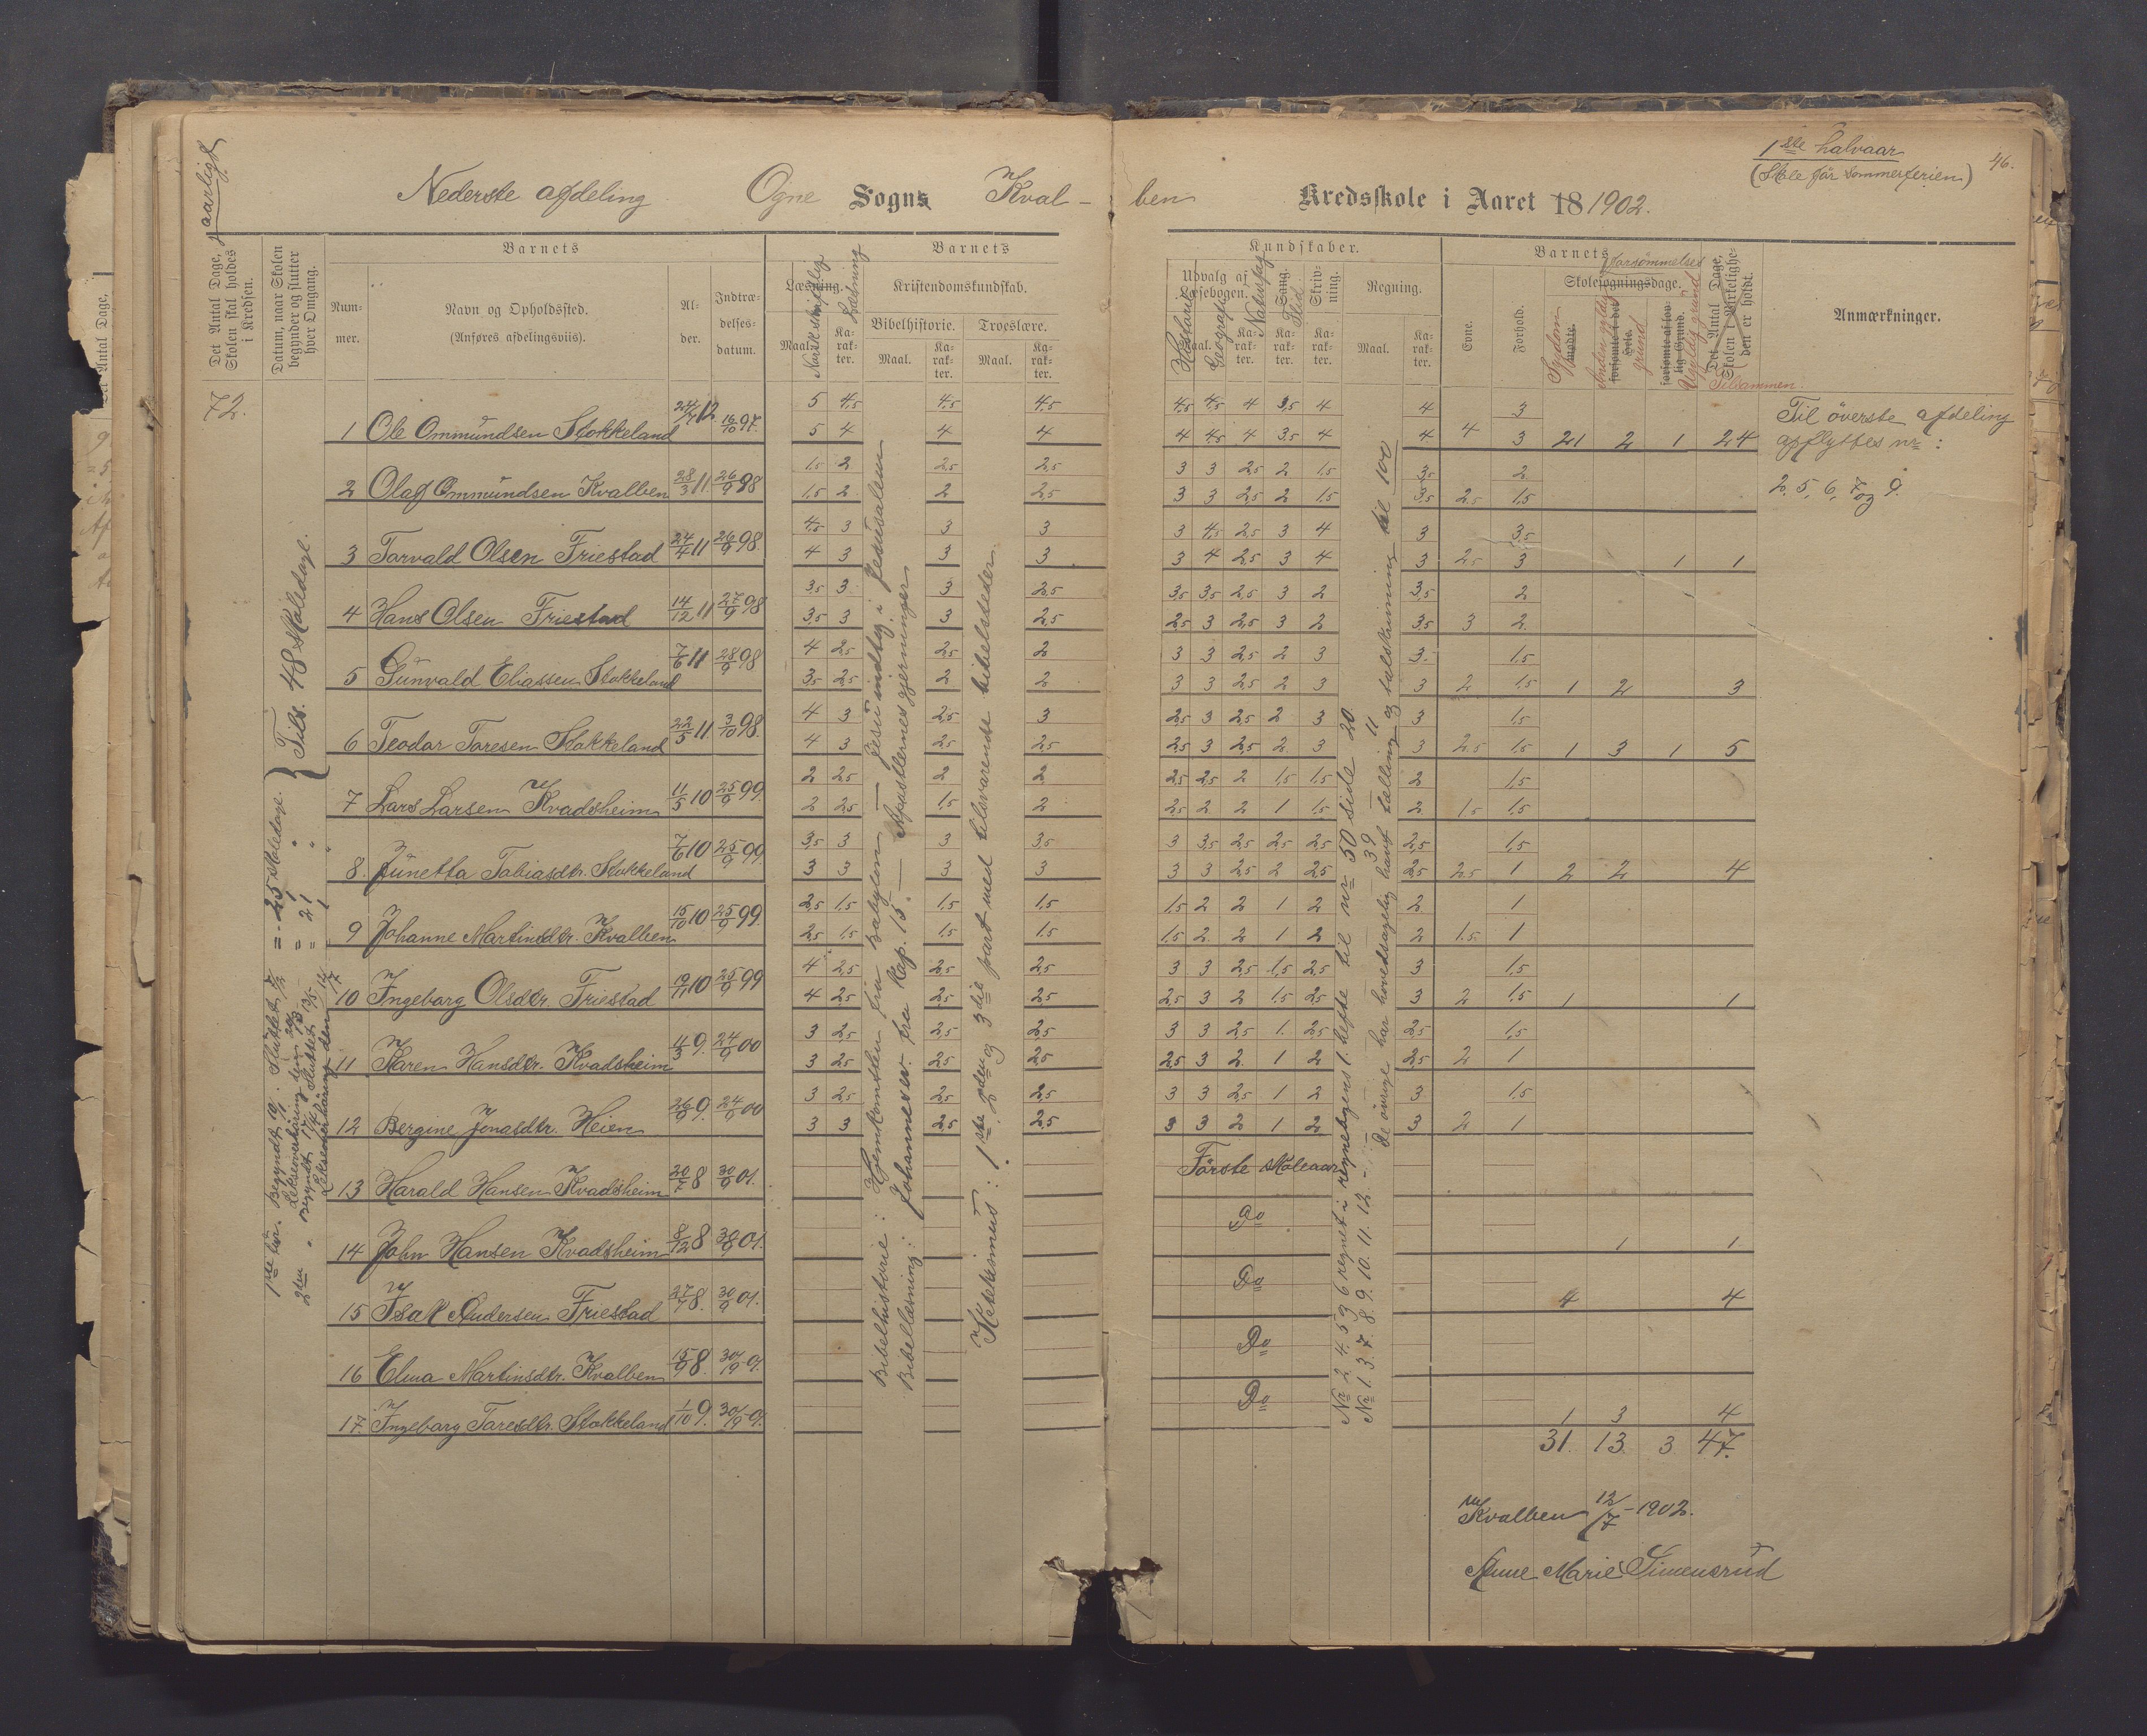 1ste halvaar
(Skole før sommerferien)
46.
aarligt
Nederste afdeling Ogne Sogns Kval-
ben Kredsskole i Aaret 18 1902.
Det Antal Dage, Skolen skal holdes i Kredsen.
Datum, naar Skolen begynder og slutter hver Omgang.
Barnets
Num-mer.
Navn og Opholdssted.
(Anføres afdelingsviis).
Al-der.
Indtræ-delses-datum.
Barnets
Læsning.
Norsk skriftlig
Læsning
Maal.
Ka-rak-ter.
Kristendomskundskab.
Bibelhistorie.
Troeslære.
Maal.
Ka-rak-ter.
Maal.
Ka-rak-ter.
Kundskaber.
Udvalg af Læsebogen.
Historie
Geografi
Naturfag
Sang.
Flid
Skriv-ning.
Regning.
Maal.
Ka-rak-ter.
Ka-rak-ter.
Ka-rak-ter.
Maal.
Ka-rak-ter.
Barnets
Evne.
Forhold.
forsømmelses
Skolesøgningsdage.
Sygdom
mødte.
Anden gyldig grund
forsømte i det Hele.
Ugyldig grund
forsømte af lov-lig Grund.
Det Antal Dage, Skolen i Virkelighe-den er holdt.
Tilsammen.
Anmærkninger.
72.
1 Ole Ommundsen Stokkeland 24/7 12 16/10 97.
5 4,5 4,5 4,5 4,5 4,5 4 3,5 4 4 3
5 4 4 4 4 4,5 4 3,5 4 4 4 3 21 2 1 24
Til överste afdeling
opflyttes nr:
2, 5, 6, 7 og 9.
2 Olaf Ommundsen Kvalben 28/3 11. 26/9 98
1,5 2 2,5 2,5 3 3 2,5 2 1,5 3,5 2
1,5 2 2 2,5 3 3 2,5 2 1,5 3,5 2,5 1,5
3 Torvald Olsen Friestad 24/4 11 26/9 98.
4,5 3 3 3 3 4,5 2,5 3 4 3 3,5
4 3 3 3 3 4 2,5 3 4 3 2,5 3 1 1
4 Hans Olsen Friestad 14/12 11 27/9 98
3,5 3 3 2,5 3,5 3,5 2,5 3 2 3,5 2
3,5 3 3 2,5 2,5 3 2,5 3 2 3,5 3 2
5 Gunvald Eliassen Stokkeland 7/6 11 28/9 98
4 2,5 2,5 2 3 3 2,5 2 3 3 1,5
3,5 2,5 2 2 3 3 2,5 2 3 3 2 1,5 1 2 3
6 Teodor Toresen Stokkeland 22/5 11 3/10 98.
4 3 2,5 3 2,5 3 2,5 2 3 3 1,5
4 3 2,5 2,5 2,5 3 2,5 2 3 3 2,5 1,5 1 3 1 5
7 Lars Larsen Kvadsheim 11/5 10 25/9 99.
2 2,5 2 2 2,5 2,5 2 1,5 1,5 2 1,5
2 2,5 1,5 2 2,5 2 2 1 1,5 2 1,5 1,5
8. Junetta Tobiasdtr. Stokkeland 7/6 10 25/9 99.
3,5 3 3 3,5 3 3,5 2,5 2,5 2,5 2,5 1,5
3 3 3 3 3 3 2,5 2 2,5 2,5 2,5 1 2 2 4
9 Johanne Martinsdtr. Kvalben 15/10 10 25/9 99.
2,5 1,5 1,5 1,5 1,5 2 2 1 2 2 1
2,5 1,5 1,5 1,5 1,5 2 2 1 2 2 1,5 1
10 Ingeborg Olsdtr. Friestad 19/11 10 25/9 99
4 2,5 2,5 2,5 3 3 2,5 1,5 2,5 3 1,5
4 2,5 2,5 2,5 2,5 3 2 1,5 2,5 3 2 1,5 1 1
11 Karen Hansdtr. Kvadsheim 4/3 9. 24/9 00
3 2,5 2,5 2,5 3 3 2,5 1 2,5 2,5 1,5
3 2,5 2,5 2,5 2,5 3 2 1 2 2,5 2 1
12 Bergine Jonasdtr. Heien 26/9 9. 24/9 00
3 2,5 2,5 2,5 3 3 2,5 1 2 3 1,5
3 3 2,5 2,5 3 3 2 1 2 3 2 1
13 Harald Hansen Kvadsheim 20/7 8 30/9 01. Förste skoleaar
14 John Hansen Kvadsheim 8/12 8 30/9 01. Do 1 1
15 Isak Andersen Friestad 27/7 8. 30/9 01. Do 4 4
16 Elma Martinsdtr. Kvalben 15/9 8. 30/9-01. Do
17. Ingeborg Toresdtr. Stokkeland 1/10 9. 30/9-01. Do 1 3 4
31. 13. 3 47.
1ste tør. Begyndt 10/1. Sluttet 7/2 = 25 skoledage.
Lekseoverhöring den = 1 "
2den " Begyndt 17/4 Sluttet 13/5 = 21 "
Lekseoverhöring den 12/7 1 "
} Tils. 48 skoledage.
Bibelhistorie: Hjemkomsten fra Babylon — Jesu indtog i Jerusalem
Bibellæsning: Johannes ev. fra Kap. 15. — Apostlernes gjerninger
Katekismus: 1ste, 2den og 3die part med tilsvarende bibelsteder.
Nr 2. 4. 5 og 6 regnet i regnebogens 1. hefte til nr 50 side 20.
Nr 1. 3. 7. 8. 9. 10. 11. 12. — 39 11
De övrige har hovedsagelig havt tælling og talskrivning til 100
Kvalben 12/7-1902.
Anne Marie Simensrud